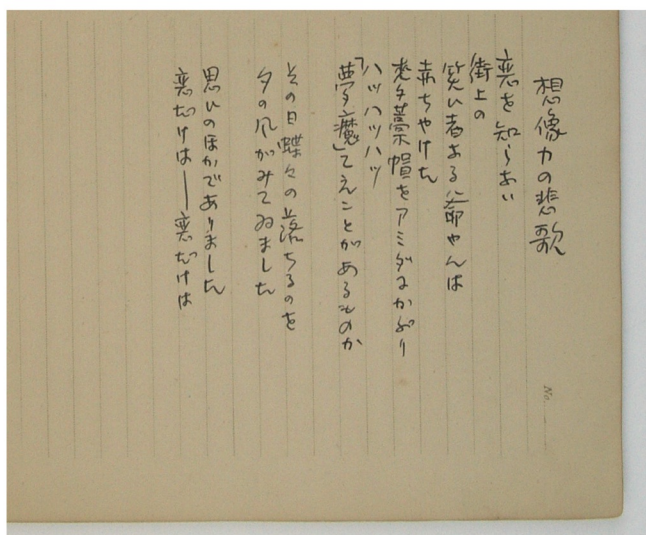 想像力の悲歌
恋を知らない
街上の
笑ひ者なる爺やんは
赤ちやけた
麥藁帽をアミダにかぶり
ハッハッハッ
「夢魔」てえことがあるものか
その日蝶々の落ちるのを
夕の風がみてゐました
思ひのほかでありました
恋だけは――恋だけは
No.